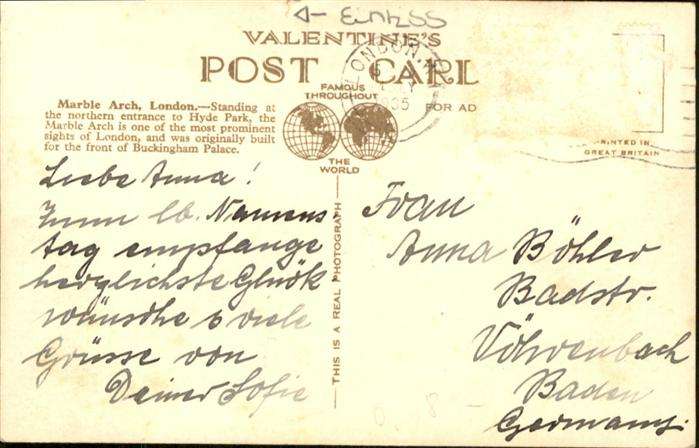 VALENTINE'S
POST CARD
FAMOUS
THROUGHOUT
THE
WORLD
LONDON
1935
FOR AD
PRINTED IN
GREAT BRITAIN
Marble Arch, London.—Standing at
the northern entrance to Hyde Park, the
Marble Arch is one of the most prominent
sights of London, and was originally built
for the front of Buckingham Palace.
Liebe Anna!
Zum lb. Namens
tag empfange
herzlichste Glük
wünsche & viele
Grüsse von
Deiner Sofie
THIS IS A REAL PHOTOGRAPH
Frau
Anna Böhler
Badstr.
Vöhrenbach
Baden
Germany.